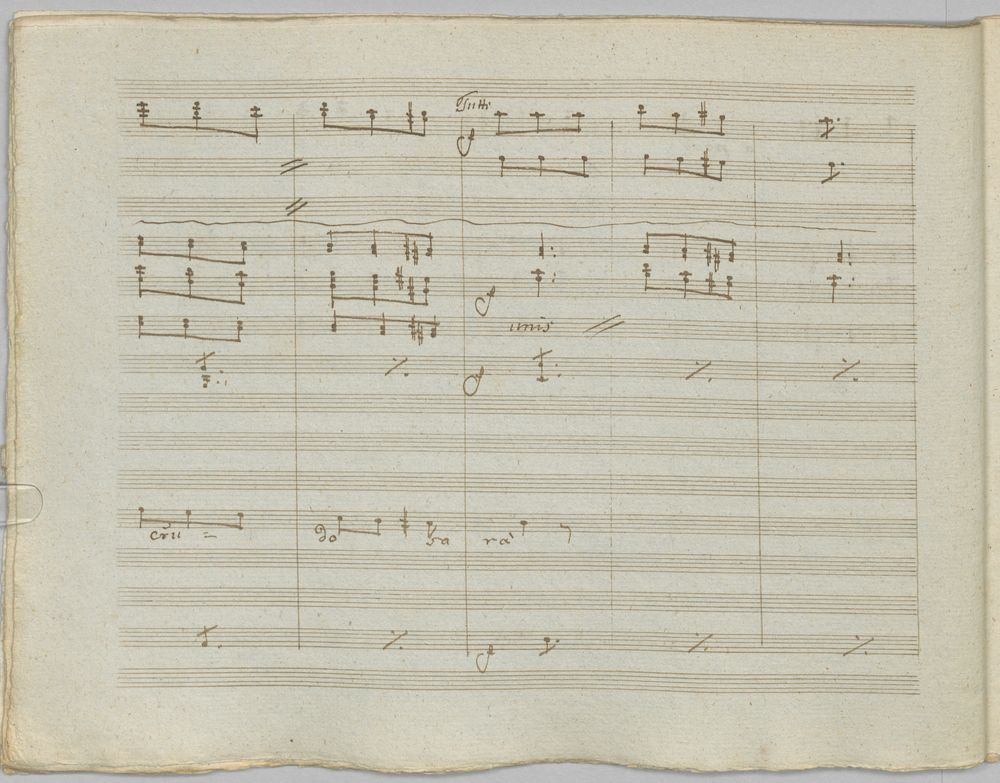 Tutti
f
f
unis
f
cru = do sa rà
f